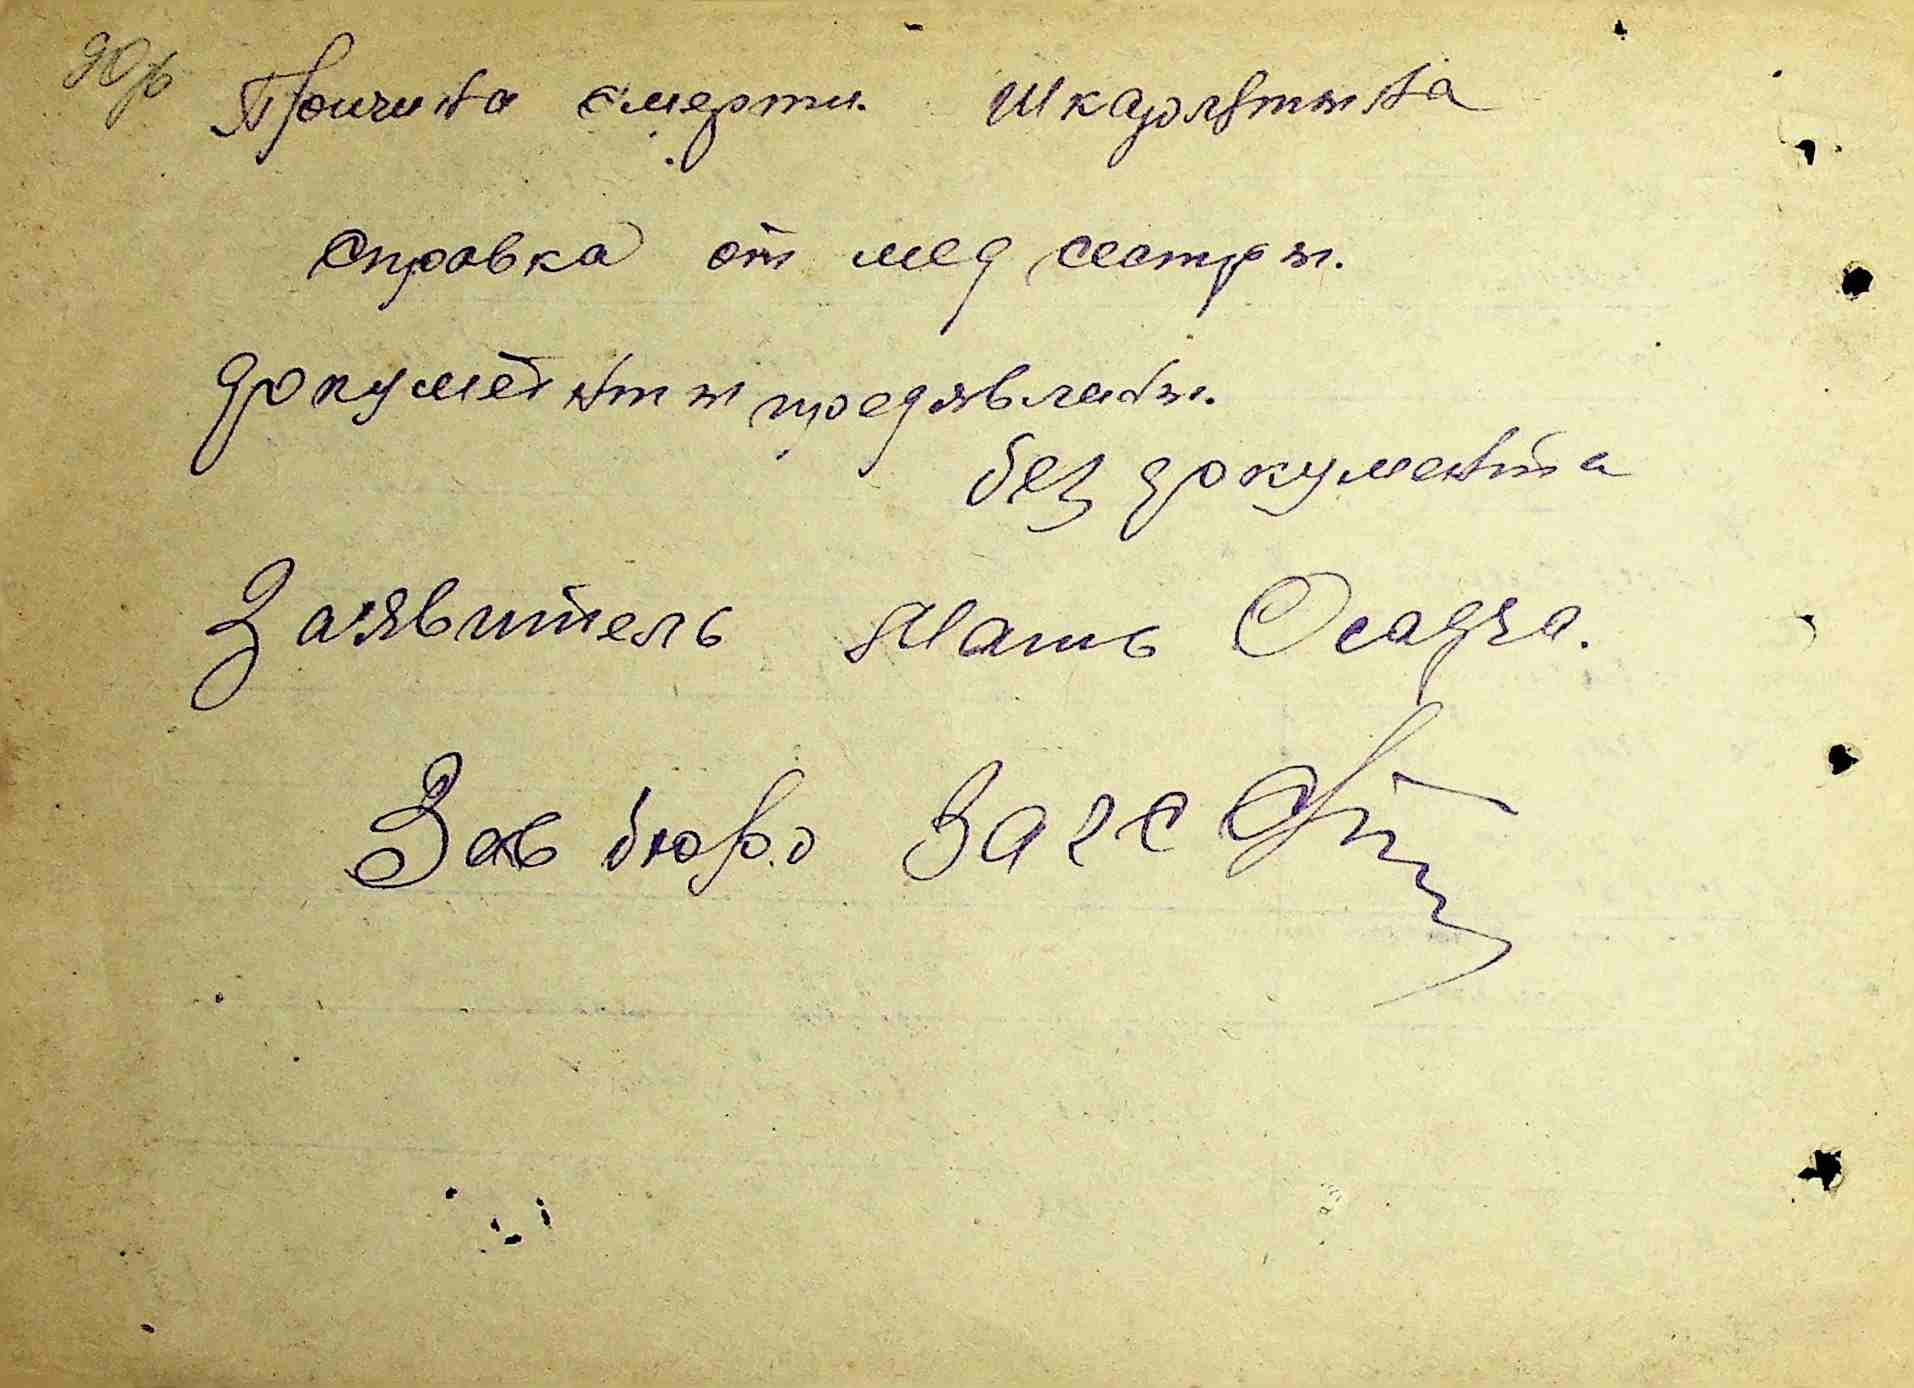 Причина смерти. Шкарлятына
Справка от мед сестры.
документы предявлены.
без документа
Заявитель Мать Осадча.
Зав бюро Загс